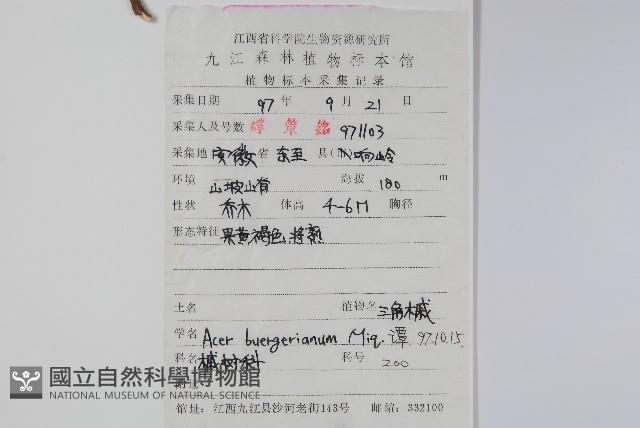 江西省科学院生物资源研究所
九江森林植物标本馆
植物标本采集记录
采集日期 97 年 9 月 21 日
采集人及号数 谭策铭 971103
采集地 安徽 省 东至 县(市) 响岭
环境 山坡山脊 海拔 180 m
性状 乔木 体高 4-6M 胸径
形态特征 果黄褐色,将熟
土名 植物名 三角槭
学名 Acer buergerianum Miq. 谭 97.10.15.
科名 槭树科 科号 200
國立自然科學博物館
NATIONAL MUSEUM OF NATURAL SCIENCE
馆址:江西九江县沙河老街143号 邮编:332100